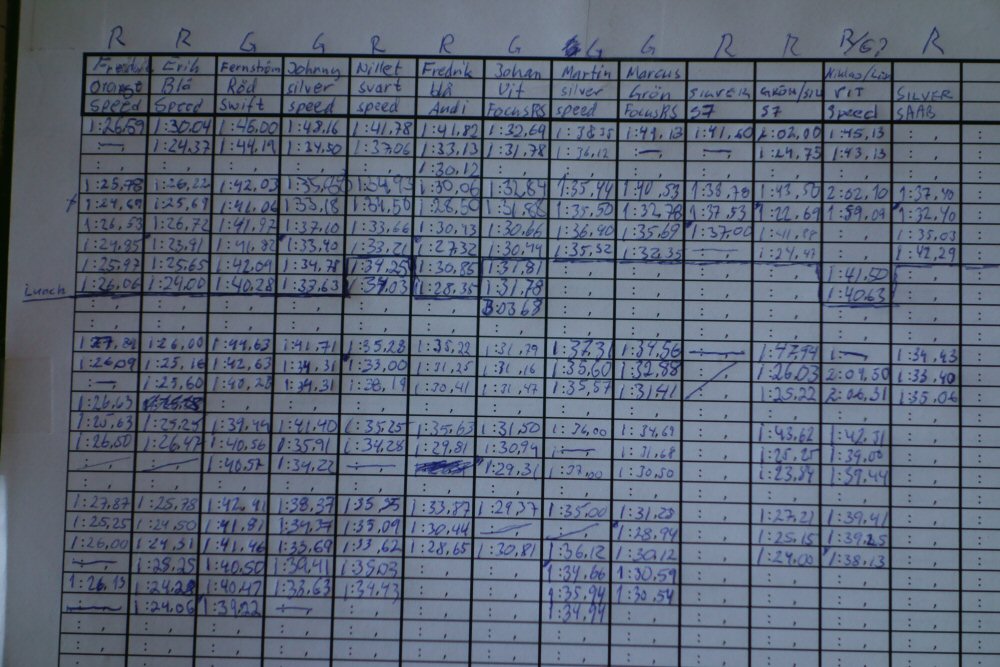 R R G G R R G G G R R R/G? R
Fredrik Erik Fernström Johnny Nillet Fredrik Johan Martin Marcus Niklas
Orange Blå Röd silver svart blå Vit silver Grön SILVER GRÖN VIT SILVER
Speed Speed Swift speed speed Audi FocusRS speed FocusRS S7 S7 Speed SAAB
1:26,59 1:30,04 1:46,00 1:48,16 1:41,78 1:41,82 1:32,69 1:41,13 1:41,60 2:02,00 1:45,13
1:24,37 1:44,19 1:34,50 1:37,06 1:33,13 1:31,78 1:36,12 1:24,75 1:43,13
1:30,12
1:25,78 1:26,22 1:42,03 1:34,93 1:30,06 1:32,84 1:35,44 1:40,53 1:38,78 1:43,50 2:02,10 1:37,40
1:24,69 1:25,69 1:41,06 1:33,18 1:34,50 1:28,50 1:31,88 1:35,50 1:32,78 1:37,53 1:22,69 1:59,09 1:32,40
1:26,53 1:26,72 1:41,97 1:37,10 1:33,66 1:30,43 1:30,66 1:36,40 1:35,69 1:37,00 1:41,88 1:35,03
1:24,85 1:23,91 1:41,82 1:33,40 1:33,21 1:27,32 1:30,44 1:35,52 1:32,35 1:24,47 1:42,29
1:25,97 1:25,65 1:42,09 1:34,78 1:34,25 1:30,85 1:31,81 1:41,50
Lunch 1:26,06 1:24,00 1:40,28 1:33,63 1:34,03 1:28,35 1:31,78 1:40,63
3:03,68
1:27,84 1:26,00 1:44,63 1:41,71 1:35,28 1:35,22 1:31,79 1:37,31 1:34,56 1:47,94 1:34,43
1:26,09 1:25,16 1:42,63 1:34,31 1:33,00 1:31,25 1:31,16 1:35,60 1:32,88 1:26,03 2:09,50 1:33,40
1:25,60 1:40,28 1:34,31 1:38,19 1:30,41 1:31,47 1:35,57 1:31,41 1:25,22 2:06,31 1:35,06
1:26,63
1:25,63 1:25,25 1:39,44 1:41,40 1:35,25 1:35,63 1:31,50 1:36,00 1:34,69 1:43,62 1:42,31
1:26,50 1:26,47 1:40,56 1:35,91 1:34,28 1:29,81 1:30,94 1:31,68 1:25,25 1:39,00
1:40,57 1:34,22 1:29,31 1:37,00 1:30,50 1:23,84 1:39,44
1:27,87 1:25,78 1:42,91 1:38,37 1:35,35 1:33,87 1:29,37 1:35,00 1:31,28 1:27,21 1:39,41
1:25,25 1:24,50 1:41,81 1:34,37 1:35,09 1:30,44 1:28,94 1:25,15 1:39,25
1:26,00 1:24,31 1:41,46 1:33,69 1:33,62 1:28,65 1:30,81 1:36,12 1:30,12 1:24,00 1:38,13
1:25,25 1:40,50 1:39,41 1:35,03 1:34,66 1:30,59
1:26,15 1:24,28 1:40,47 1:33,63 1:34,43 1:35,94 1:30,54
1:24,06 1:39,22 1:34,94